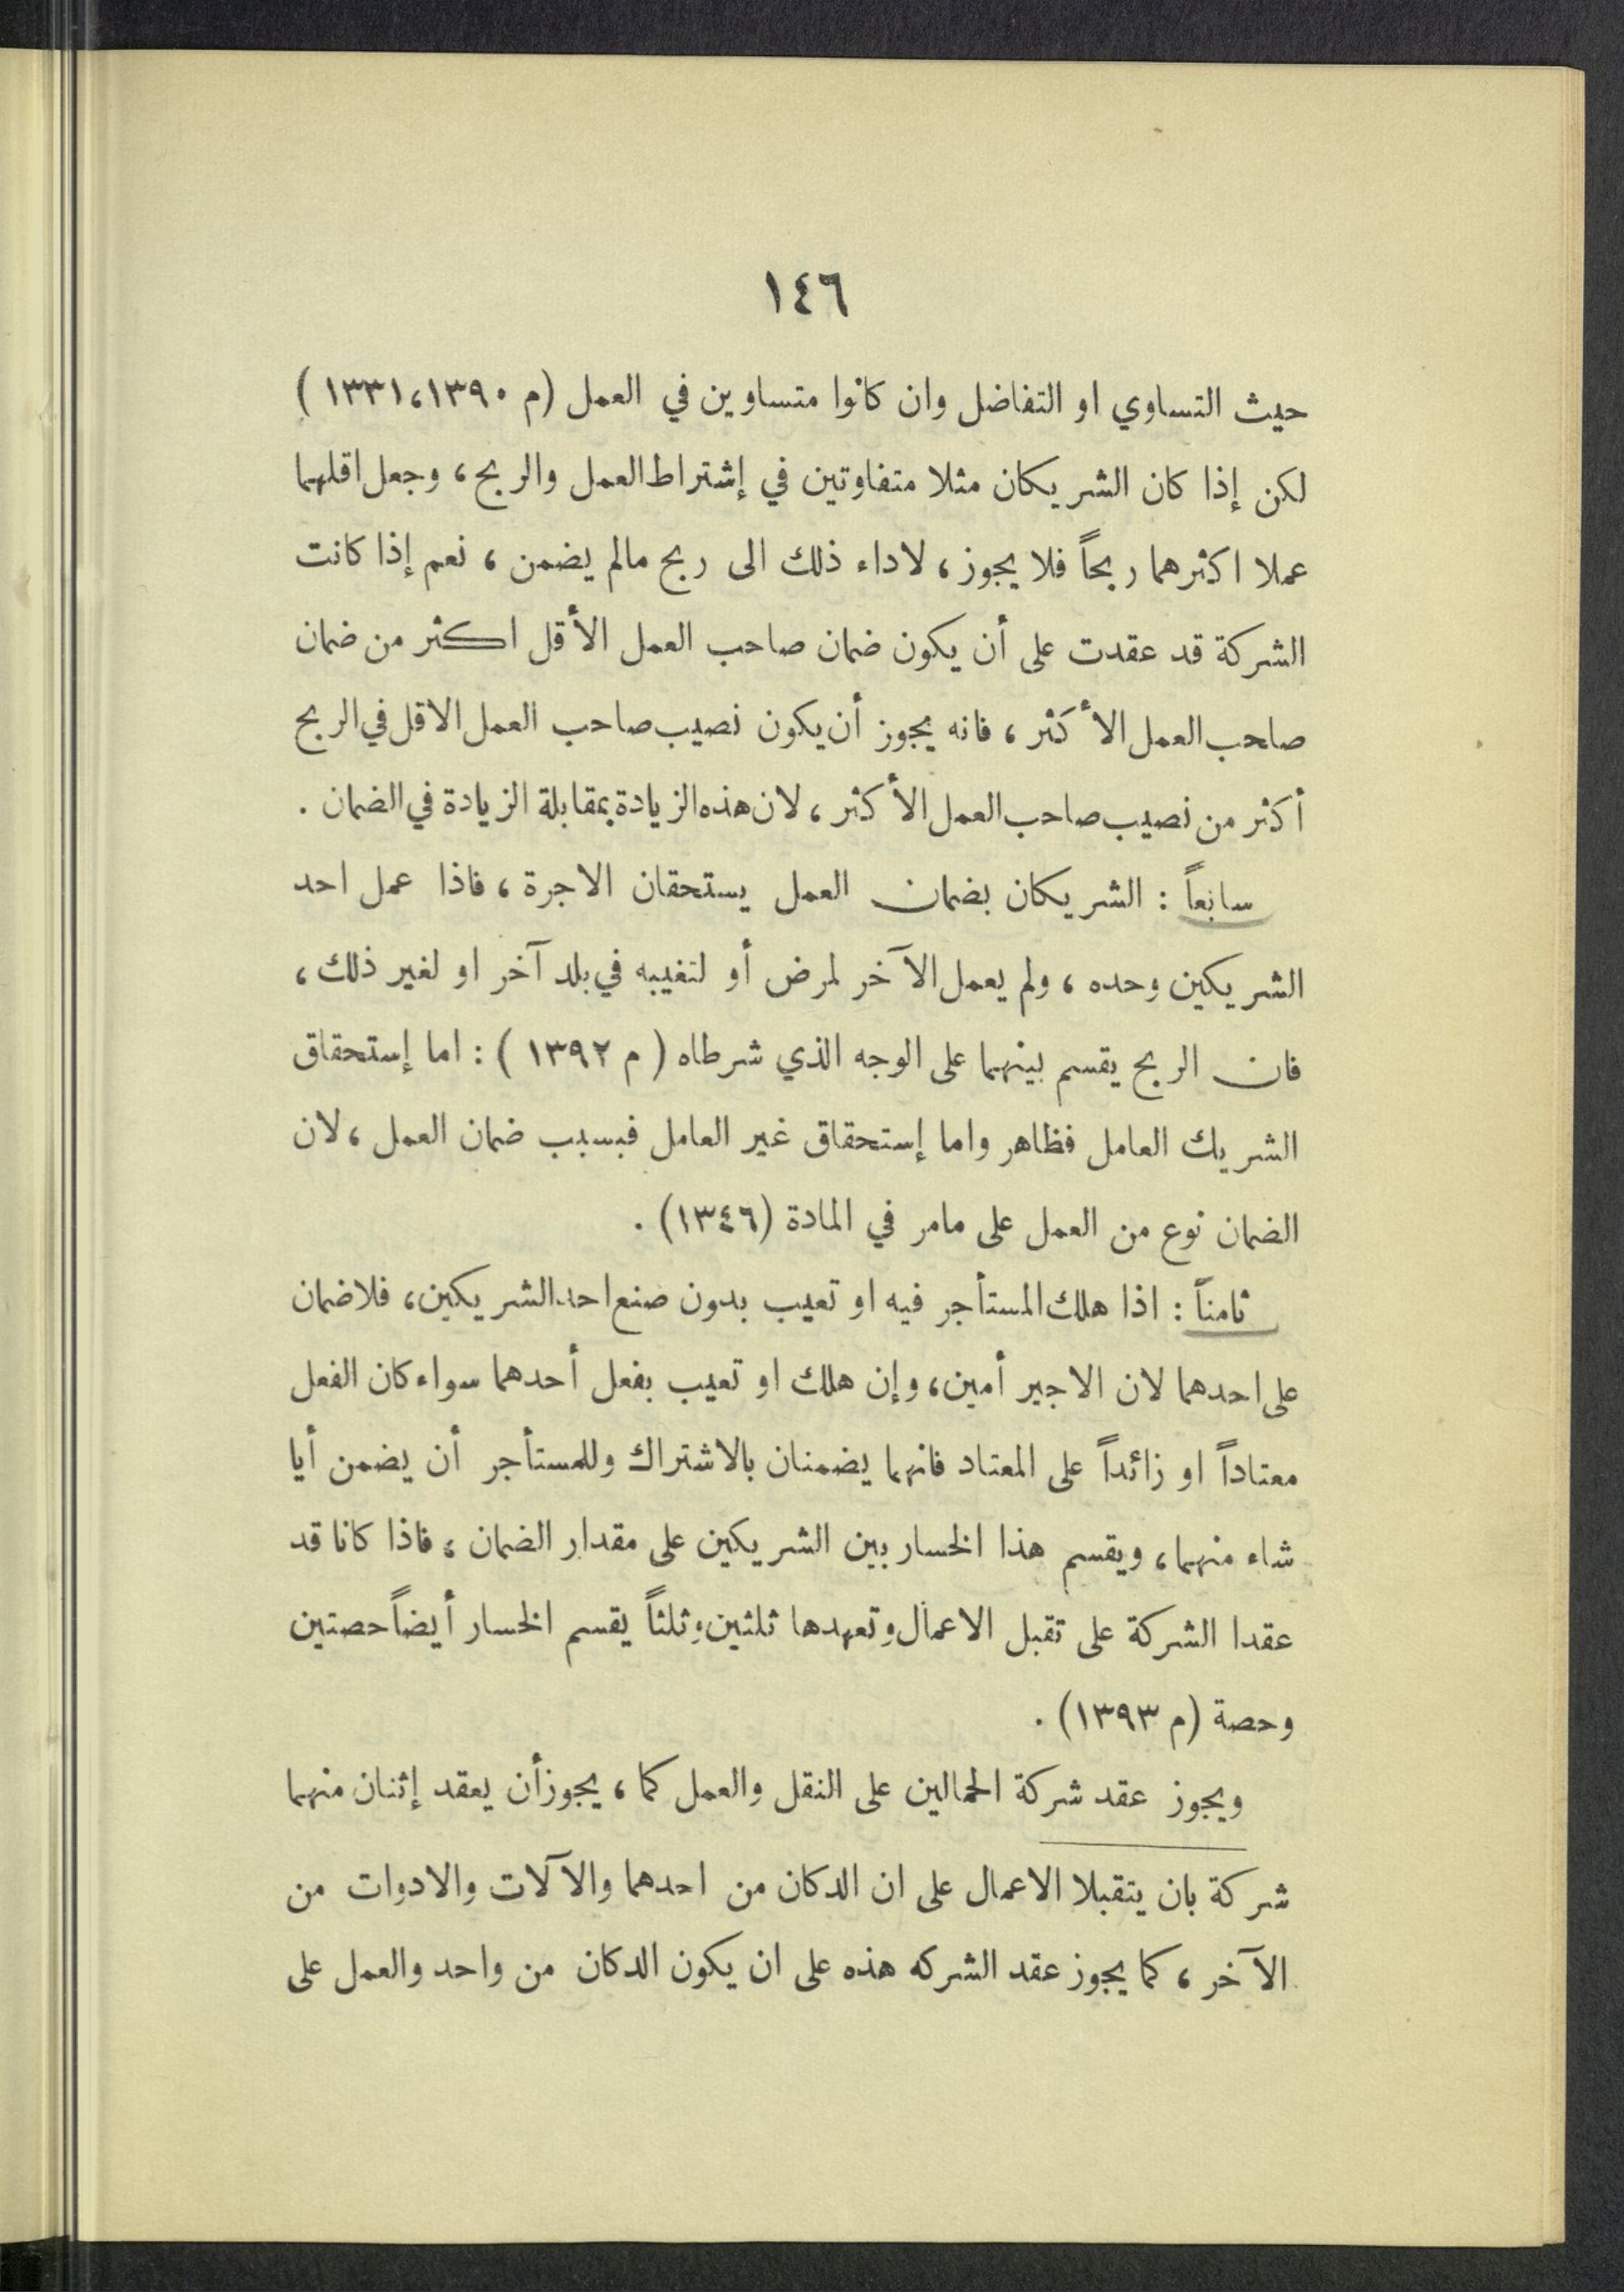 ١٤٦
حيث التساوي او التفاضل وان كانوا متساوين في العمل (م ١٣٣١،١٣٩٠)
لكن إذا كان الشريكان مثلا متفاوتين في إشتراط العمل والربح، وجعل اقلهما
عملا اكثرهما ربحاً فلا يجوز، لاداء ذلك الى ربح مالم يضمن، نعم إذا كانت
الشركة قد عقدت على أن يكون ضمان صاحب العمل الأقل اكثر من ضمان
صاحب العمل الأكثر، فانه يجوز أن يكون نصيب صاحب العمل الاقل في الربح
أكثر من نصيب صاحب العمل الأكثر، لان هذه الزيادة بمقابلة الزيادة في الضمان.
سابعاً: الشريكان بضمان العمل يستحقان الاجرة، فاذا عمل احد
الشريكين وحده، ولم يعمل الآخر لمرض أو لتغيبه في بلد آخر او لغير ذلك،
فان الربح يقسم بينهما على الوجه الذي شرطاه (م ١٣٩٢): اما إستحقاق
الشريك العامل فظاهر واما إستحقاق غير العامل فبسبب ضمان العمل، لان
الضمان نوع من العمل على مامر في المادة (١٣٤٦).
ثامناً: اذا هلك المستأجر فيه او تعيب بدون صنع احد الشريكين، فلا ضمان
على احدهما لان الاجير أمين، وإن هلك او تعيب بفعل أحدهما سواء كان الفعل
معتاداً او زائداً على المعتاد فانهما يضمنان بالاشتراك وللمستأجر أن يضمن أيا
شاء منهما، ويقسم هذا الخسار بين الشريكين على مقدار الضمان، فاذا كانا قد
عقدا الشركة على تقبل الاعمال وتعهدها ثلثين وثلثاً يقسم الخسار أيضاً حصتين
وحصة (م ١٣٩٣).
ويجوز عقد شركة الحمالين على النقل والعمل كما، يجوز أن يعقد إثنان منهما
شركة بان يتقبلا الاعمال على ان الدكان من احدهما والآلات والادوات من
الآخر، كما يجوز عقد الشركه هذه على ان يكون الدكان من واحد والعمل على